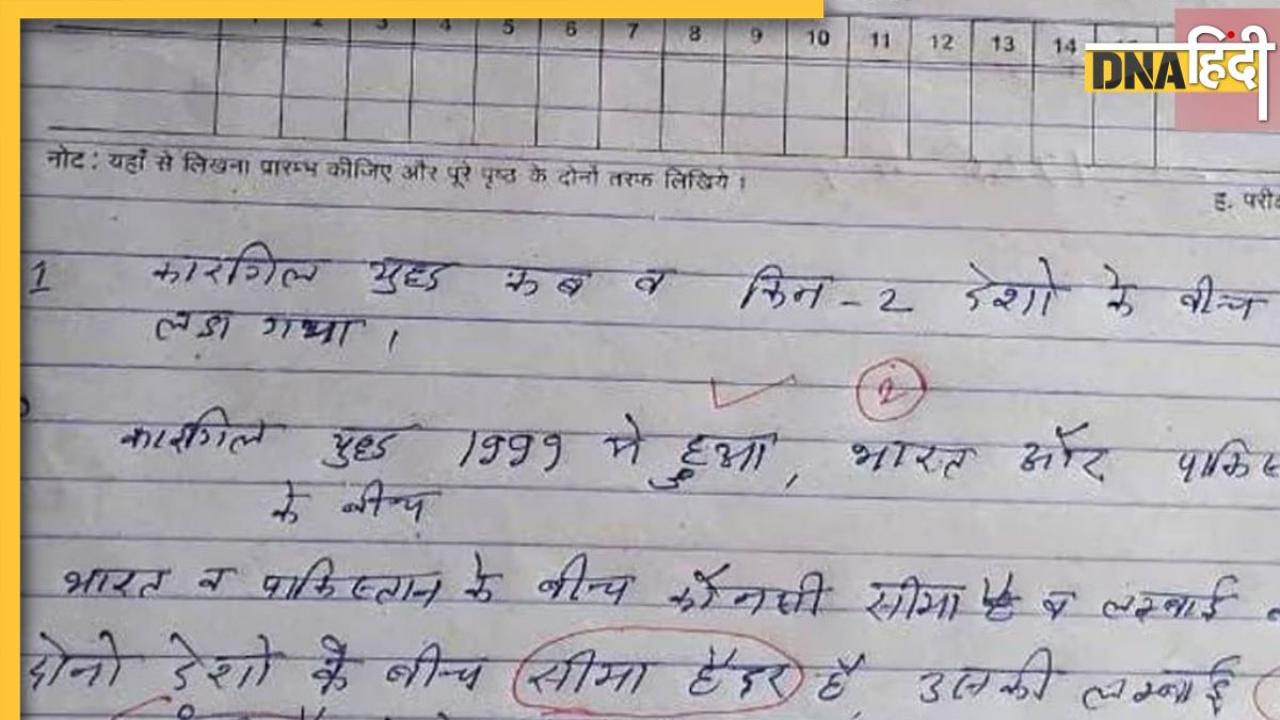 3 4 5 6 7 8 9 10 11 12 13 14
DNA हिंदी
नोट : यहाँ से लिखना प्रारम्भ कीजिए और पूरे पृष्ठ के दोनों तरफ लिखिये ।
ह. परी
1 कारगिल युद्ध कब व किन-2 देशो के बीच
लडा गया ।
2
कारगिल युद्ध 1999 मे हुआ, भारत और पाकि
के बीच
भारत व पाकिस्तान के बीच कौनसी सीमा है व लम्बाई
दोनो देशो के बीच सीमा हैदर है उसकी लम्बाई